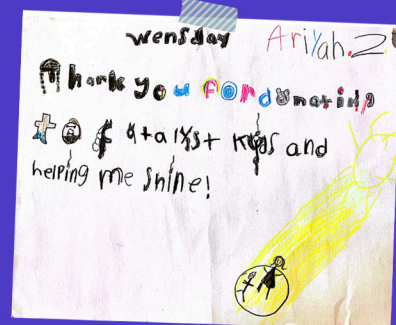 wensday Ariyah.Z
Thank you For donating
to Catalyst Kids and
helping me shine!